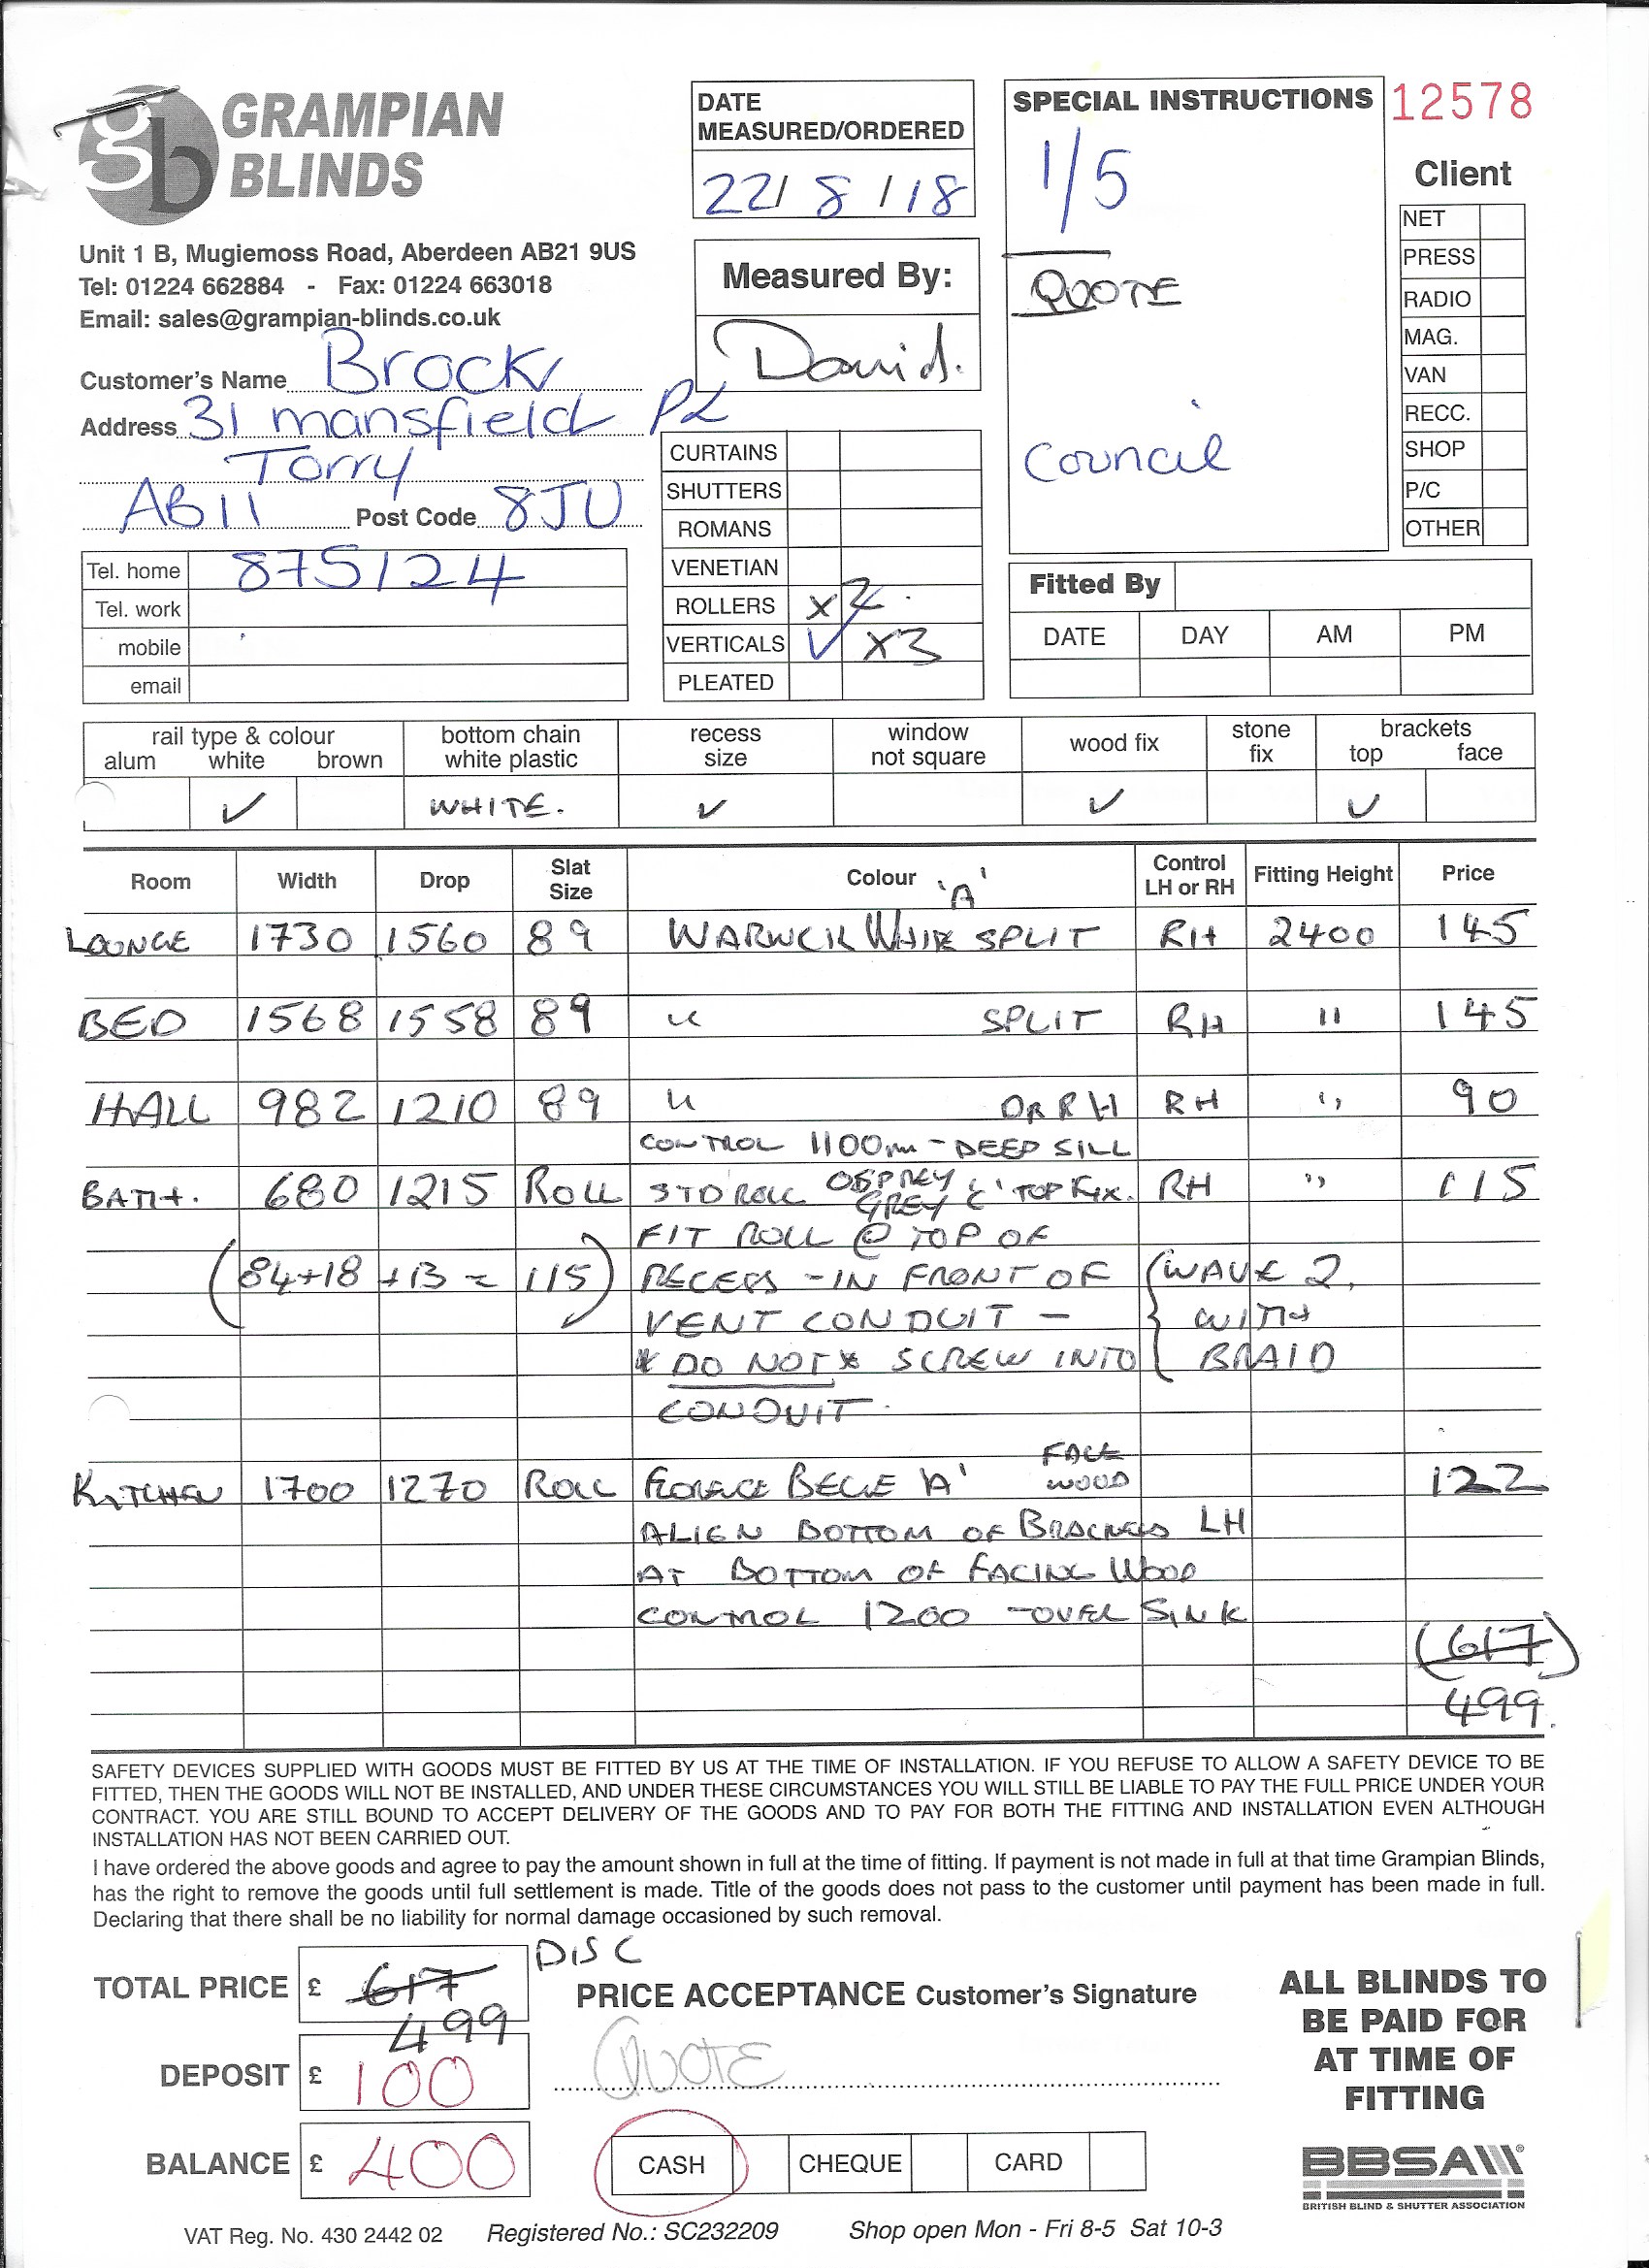 GRAMPIAN
BLINDS
Unit 1 B, Mugiemoss Road, Aberdeen AB21 9US
Tel: 01224 662884 - Fax: 01224 663018
Email: sales@grampian-blinds.co.uk
Customer's Name Brock
Address 31 mansfield PL
Torry
AB11 Post Code 8JU
Tel. home 875124
Tel. work
mobile
email
DATE
MEASURED/ORDERED
22/8/18
Measured By:
David.
CURTAINS
SHUTTERS
ROMANS
VENETIAN
ROLLERS x2
VERTICALS ✓ x3
PLEATED
SPECIAL INSTRUCTIONS
1/5
QUOTE
Council
12578
Client
NET
PRESS
RADIO
MAG.
VAN
RECC.
SHOP
P/C
OTHER
Fitted By
DATE DAY AM PM
rail type & colour bottom chain recess window wood fix stone brackets
alum white brown white plastic size not square fix top face
✓ WHITE. ✓ ✓ ✓
Room Width Drop Slat Size Colour 'A' Control LH or RH Fitting Height Price
LOUNGE 1730 1560 89 WARWICK WHITE SPLIT RH 2400 145
BED 1568 1558 89 " SPLIT RH " 145
HALL 982 1210 89 " RH RH " 90
CONTROL 1100m - DEEP SILL
BATH. 680 1215 ROLL STD ROLL OSPREY GREY 'C' TOP FIX. RH " 115
FIT ROLL @ TOP OF
(84+18 +13 = 115) RECESS - IN FRONT OF (WAVE 2,
VENT CONDUIT - WITH
* DO NOT * SCREW INTO BRAID
CONDUIT.
KITCHEN 1700 1270 ROLL FLORENCE BEGE 'A' FACE WOOD 122
ALIGN BOTTOM OF BRACKETS LH
AT BOTTOM OF FACING WOOD
CONTROL 1200 - OVER SINK
(617)
499.
SAFETY DEVICES SUPPLIED WITH GOODS MUST BE FITTED BY US AT THE TIME OF INSTALLATION. IF YOU REFUSE TO ALLOW A SAFETY DEVICE TO BE
FITTED, THEN THE GOODS WILL NOT BE INSTALLED, AND UNDER THESE CIRCUMSTANCES YOU WILL STILL BE LIABLE TO PAY THE FULL PRICE UNDER YOUR
CONTRACT. YOU ARE STILL BOUND TO ACCEPT DELIVERY OF THE GOODS AND TO PAY FOR BOTH THE FITTING AND INSTALLATION EVEN ALTHOUGH
INSTALLATION HAS NOT BEEN CARRIED OUT.
I have ordered the above goods and agree to pay the amount shown in full at the time of fitting. If payment is not made in full at that time Grampian Blinds,
has the right to remove the goods until full settlement is made. Title of the goods does not pass to the customer until payment has been made in full.
Declaring that there shall be no liability for normal damage occasioned by such removal.
TOTAL PRICE £ 617 DISC
499
DEPOSIT £ 100
BALANCE £ 400
PRICE ACCEPTANCE Customer's Signature
QUOTE
CASH CHEQUE CARD
ALL BLINDS TO
BE PAID FOR
AT TIME OF
FITTING
BBSA
BRITISH BLIND & SHUTTER ASSOCIATION
VAT Reg. No. 430 2442 02 Registered No.: SC232209 Shop open Mon - Fri 8-5 Sat 10-3